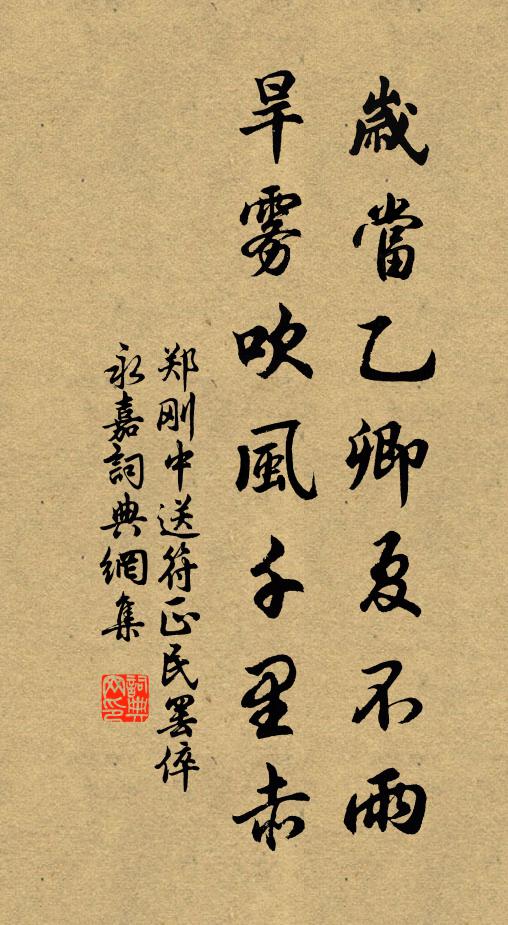 歲當乙卿夏不雨
旱雾吹風千里赤
郑刚中送符正民罢倅
永嘉詞典網集
詞典
网印